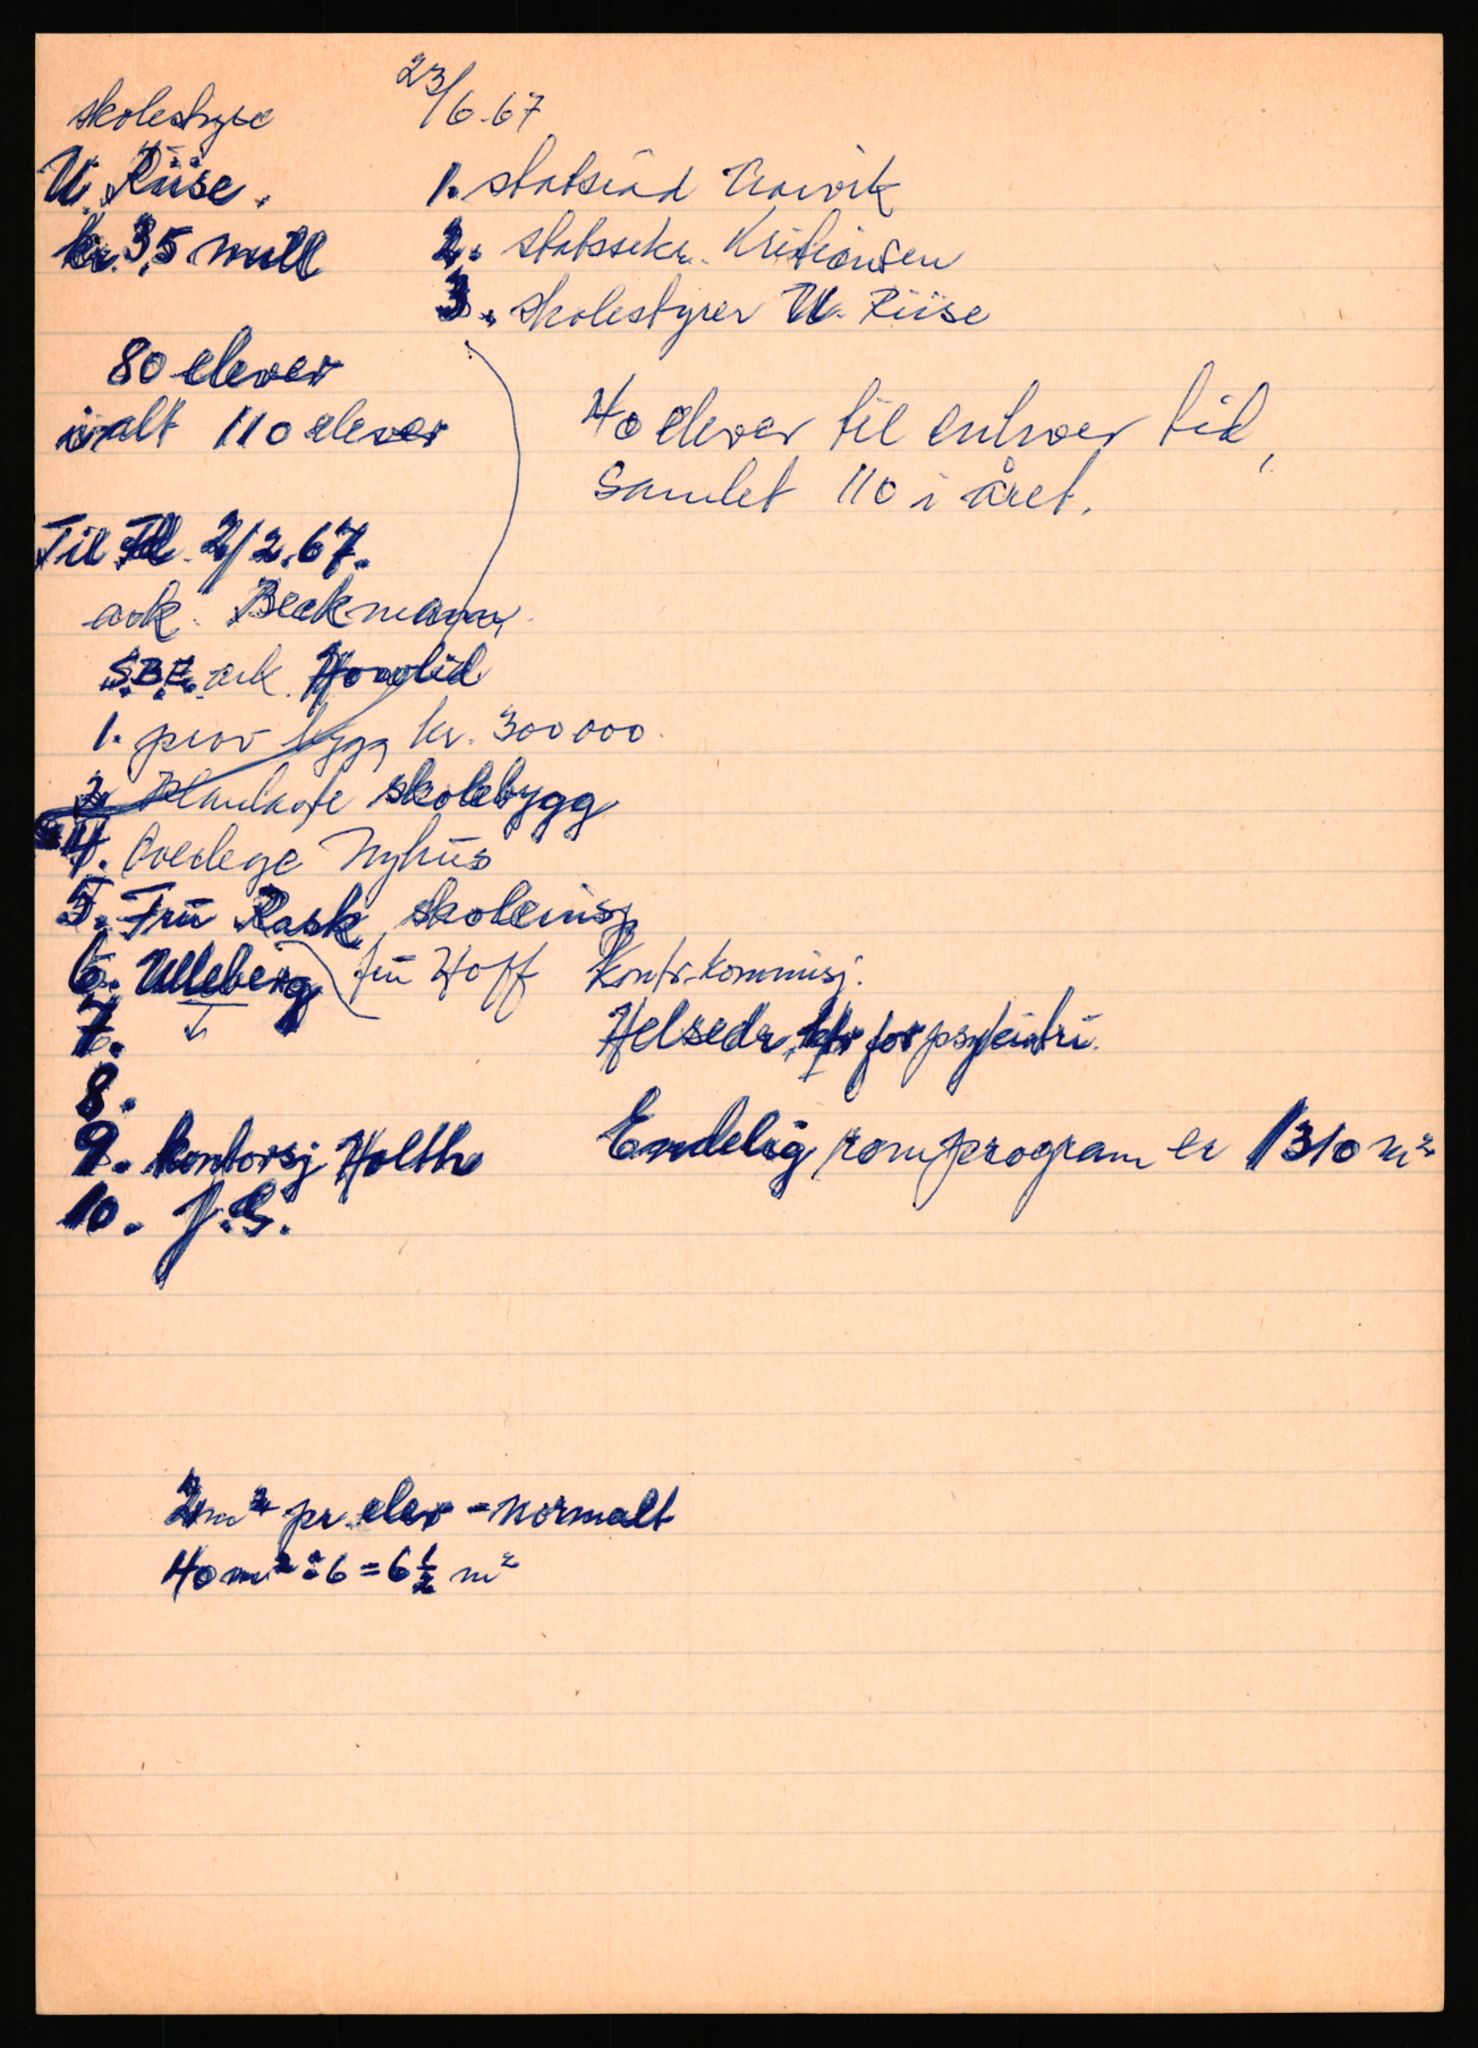 skolestyre 23/6-67
U. Riise. 1. statsråd Trøvik
kr. 3,5 mill 2. statssekr. Kristiansen
3. skolestyrer U. Riise
80 elever
ialt 110 elever
40 elever til enhver tid,
samlet 110 i året.
Til 2/2.67.
ark. Beckmann,
SBE. ark. Hovlid
1. prov bygg kr. 300 000.
skolebygg
4. Overlege Nyhus
5. Fru Rask, skoleinsp.
6. Ulleberg fru Hoff Kontr. kommisj.
7. Helsedr. ktr for psykiatri.
8.
9. kontorsj Holth Endelig romprogram er 1310 m²
10. J.G.
2m² pr. elev - normalt
40 m² : 6 = 6 1/2 m²